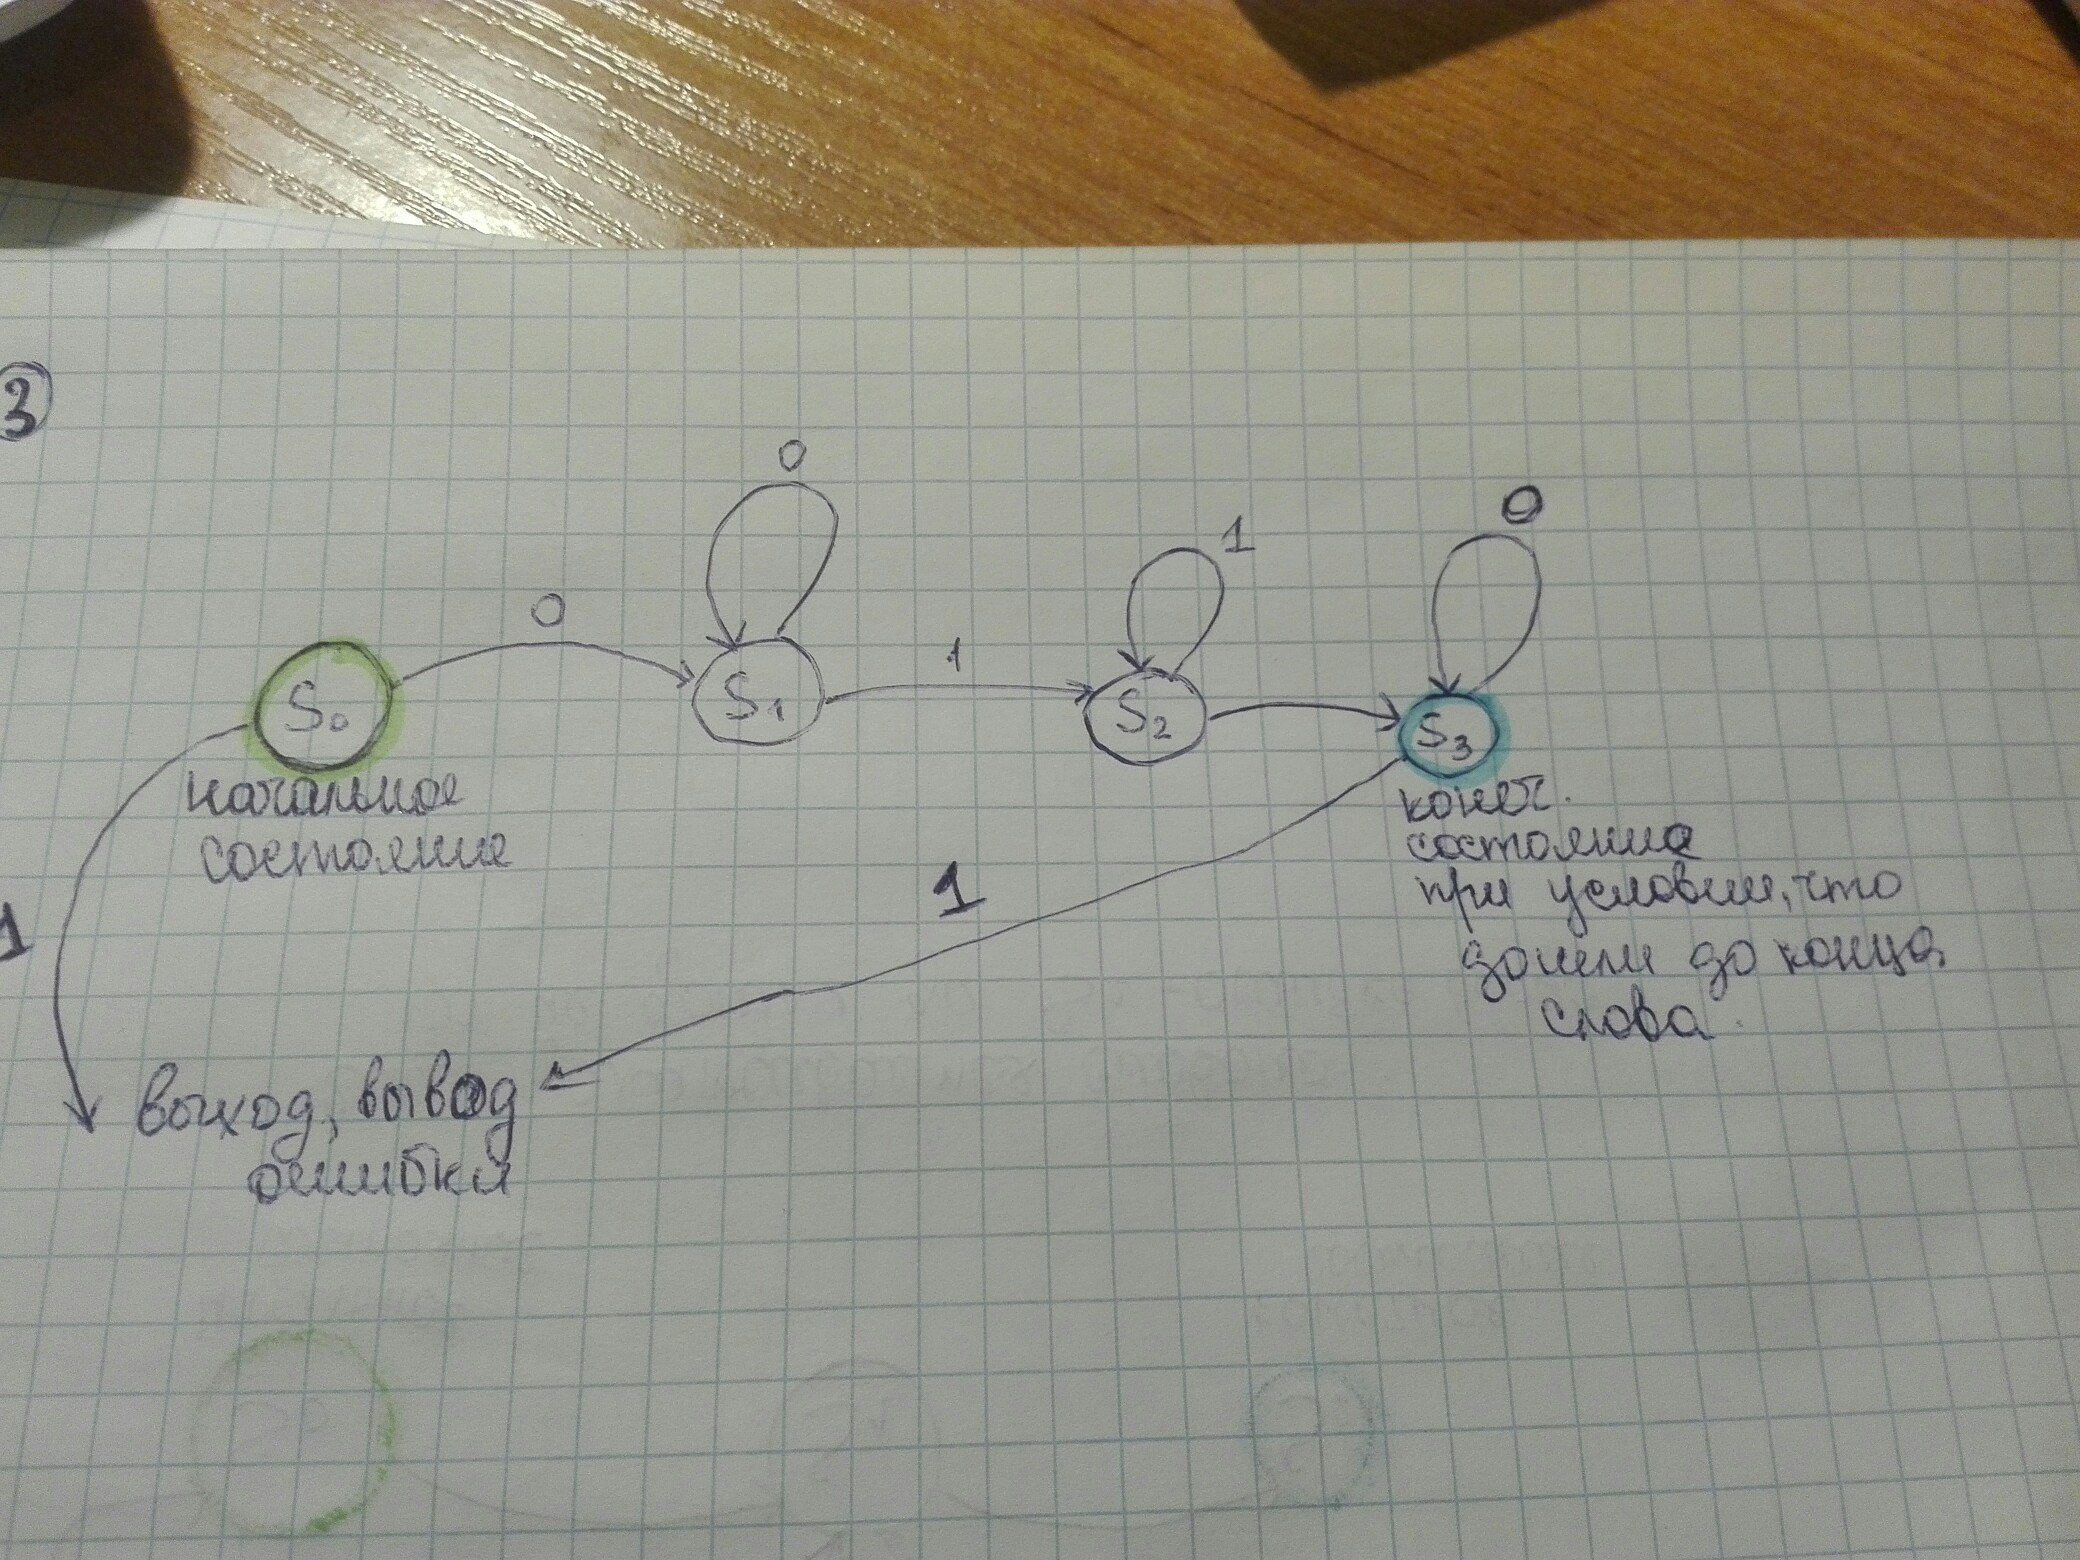 3
0
0
1
0
1
S0
S1
S2
S3
начальное
состояние
конеч.
состояние
при условии, что
дошли до конца
слова
1
1
выход, вывод
ошибки